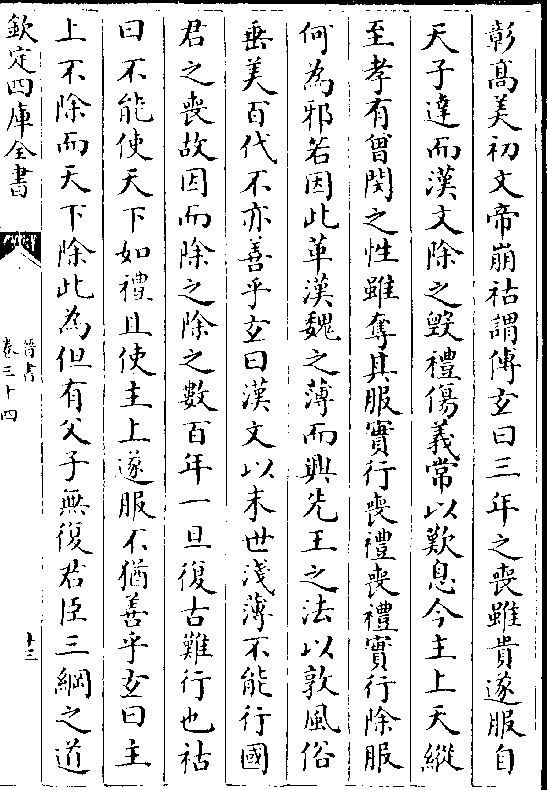 彰髙美初文帝崩祜謂傅玄曰三年之喪雖貴遂服自
天子達而漢文除之毀禮傷義常以歎息今主上天縱
至孝有曾閔之性雖奪其服實行喪禮喪禮實行除服
何為邪若因此革漢魏之薄而興先王之法以敦風俗
垂美百代不亦善乎玄曰漢文以末世淺薄不能行國
君之喪故因而除之除之數百年一旦復古難行也祜
曰不能使天下如禮且使主上遂服不猶善乎玄曰主
上不除而天下除此為但有父子無復君臣三綱之道
欽定四庫全書
晉書
卷三十四
十三